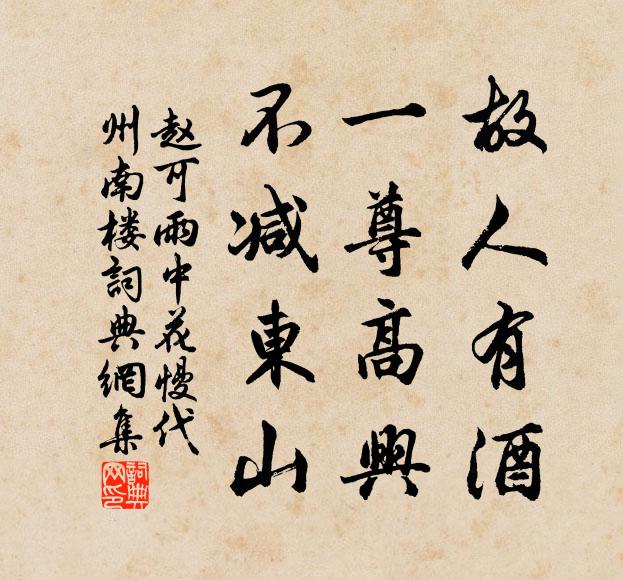 故人有酒
一尊高興
不减東山
赵可雨中花慢代
州南楼詞典網集
詞典网印